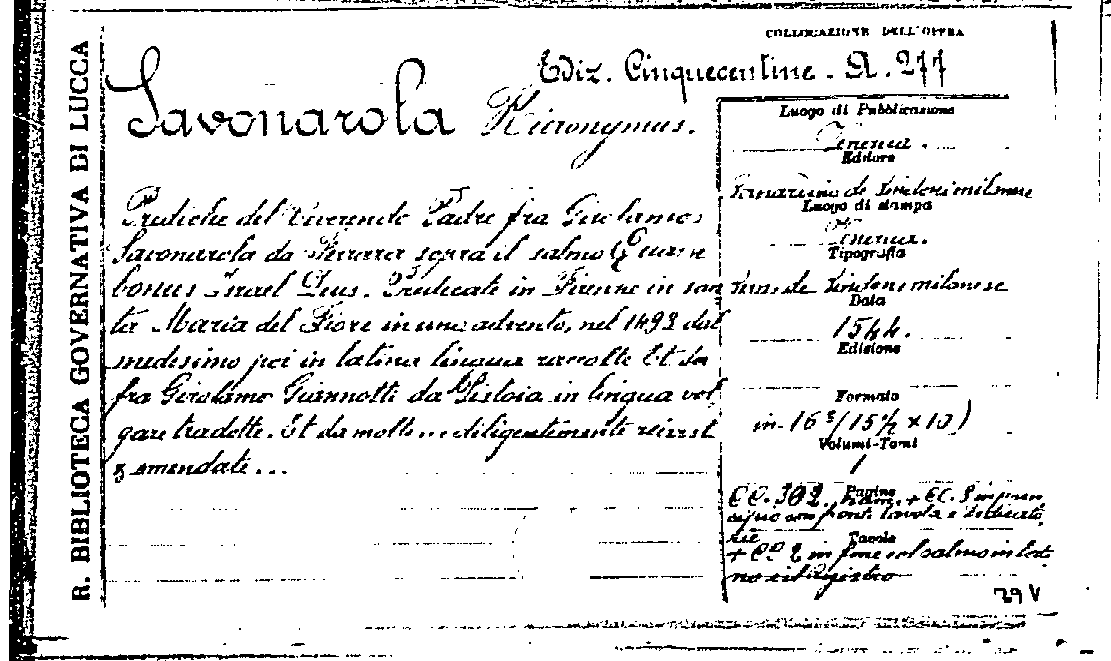 R. BIBLIOTECA GOVERNATIVA DI LUCCA
COLLOCAZIONE DELL'OPERA
Ediz. Cinquecentine. A. 277
Savonarola Hieronymus.
Prediche del Reverendo Padre fra Girolamo
Savonarola da Ferrara sopra il salmo Quam
bonus Israel Deus. Predicate in Firenze in san
ta Maria del Fiore in uno advento, nel 1493 dal
medesimo poi in latina lingua raccolte Et da
fra Girolamo Giannotti da Pistoia in lingua vol
gare tradotte. Et da molto... diligentemente reviste
z emendate...
Luogo di Pubblicazione
Venezia.
Editore
Bernardino de Bindoni milanese
Luogo di stampa
Venezia.
Tipografia
Bindoni milanese
Data
1544.
Edizione
Formato
in-16° (15½ x 10)
Volumi-Tomi
1
Pagine
CC. 302 num. + CC. 8 in prin
cipio con front. tavola e dedicato
rie
Tavole
+ CC 2 in fine col salmo in lati
no e il Registro
29 V